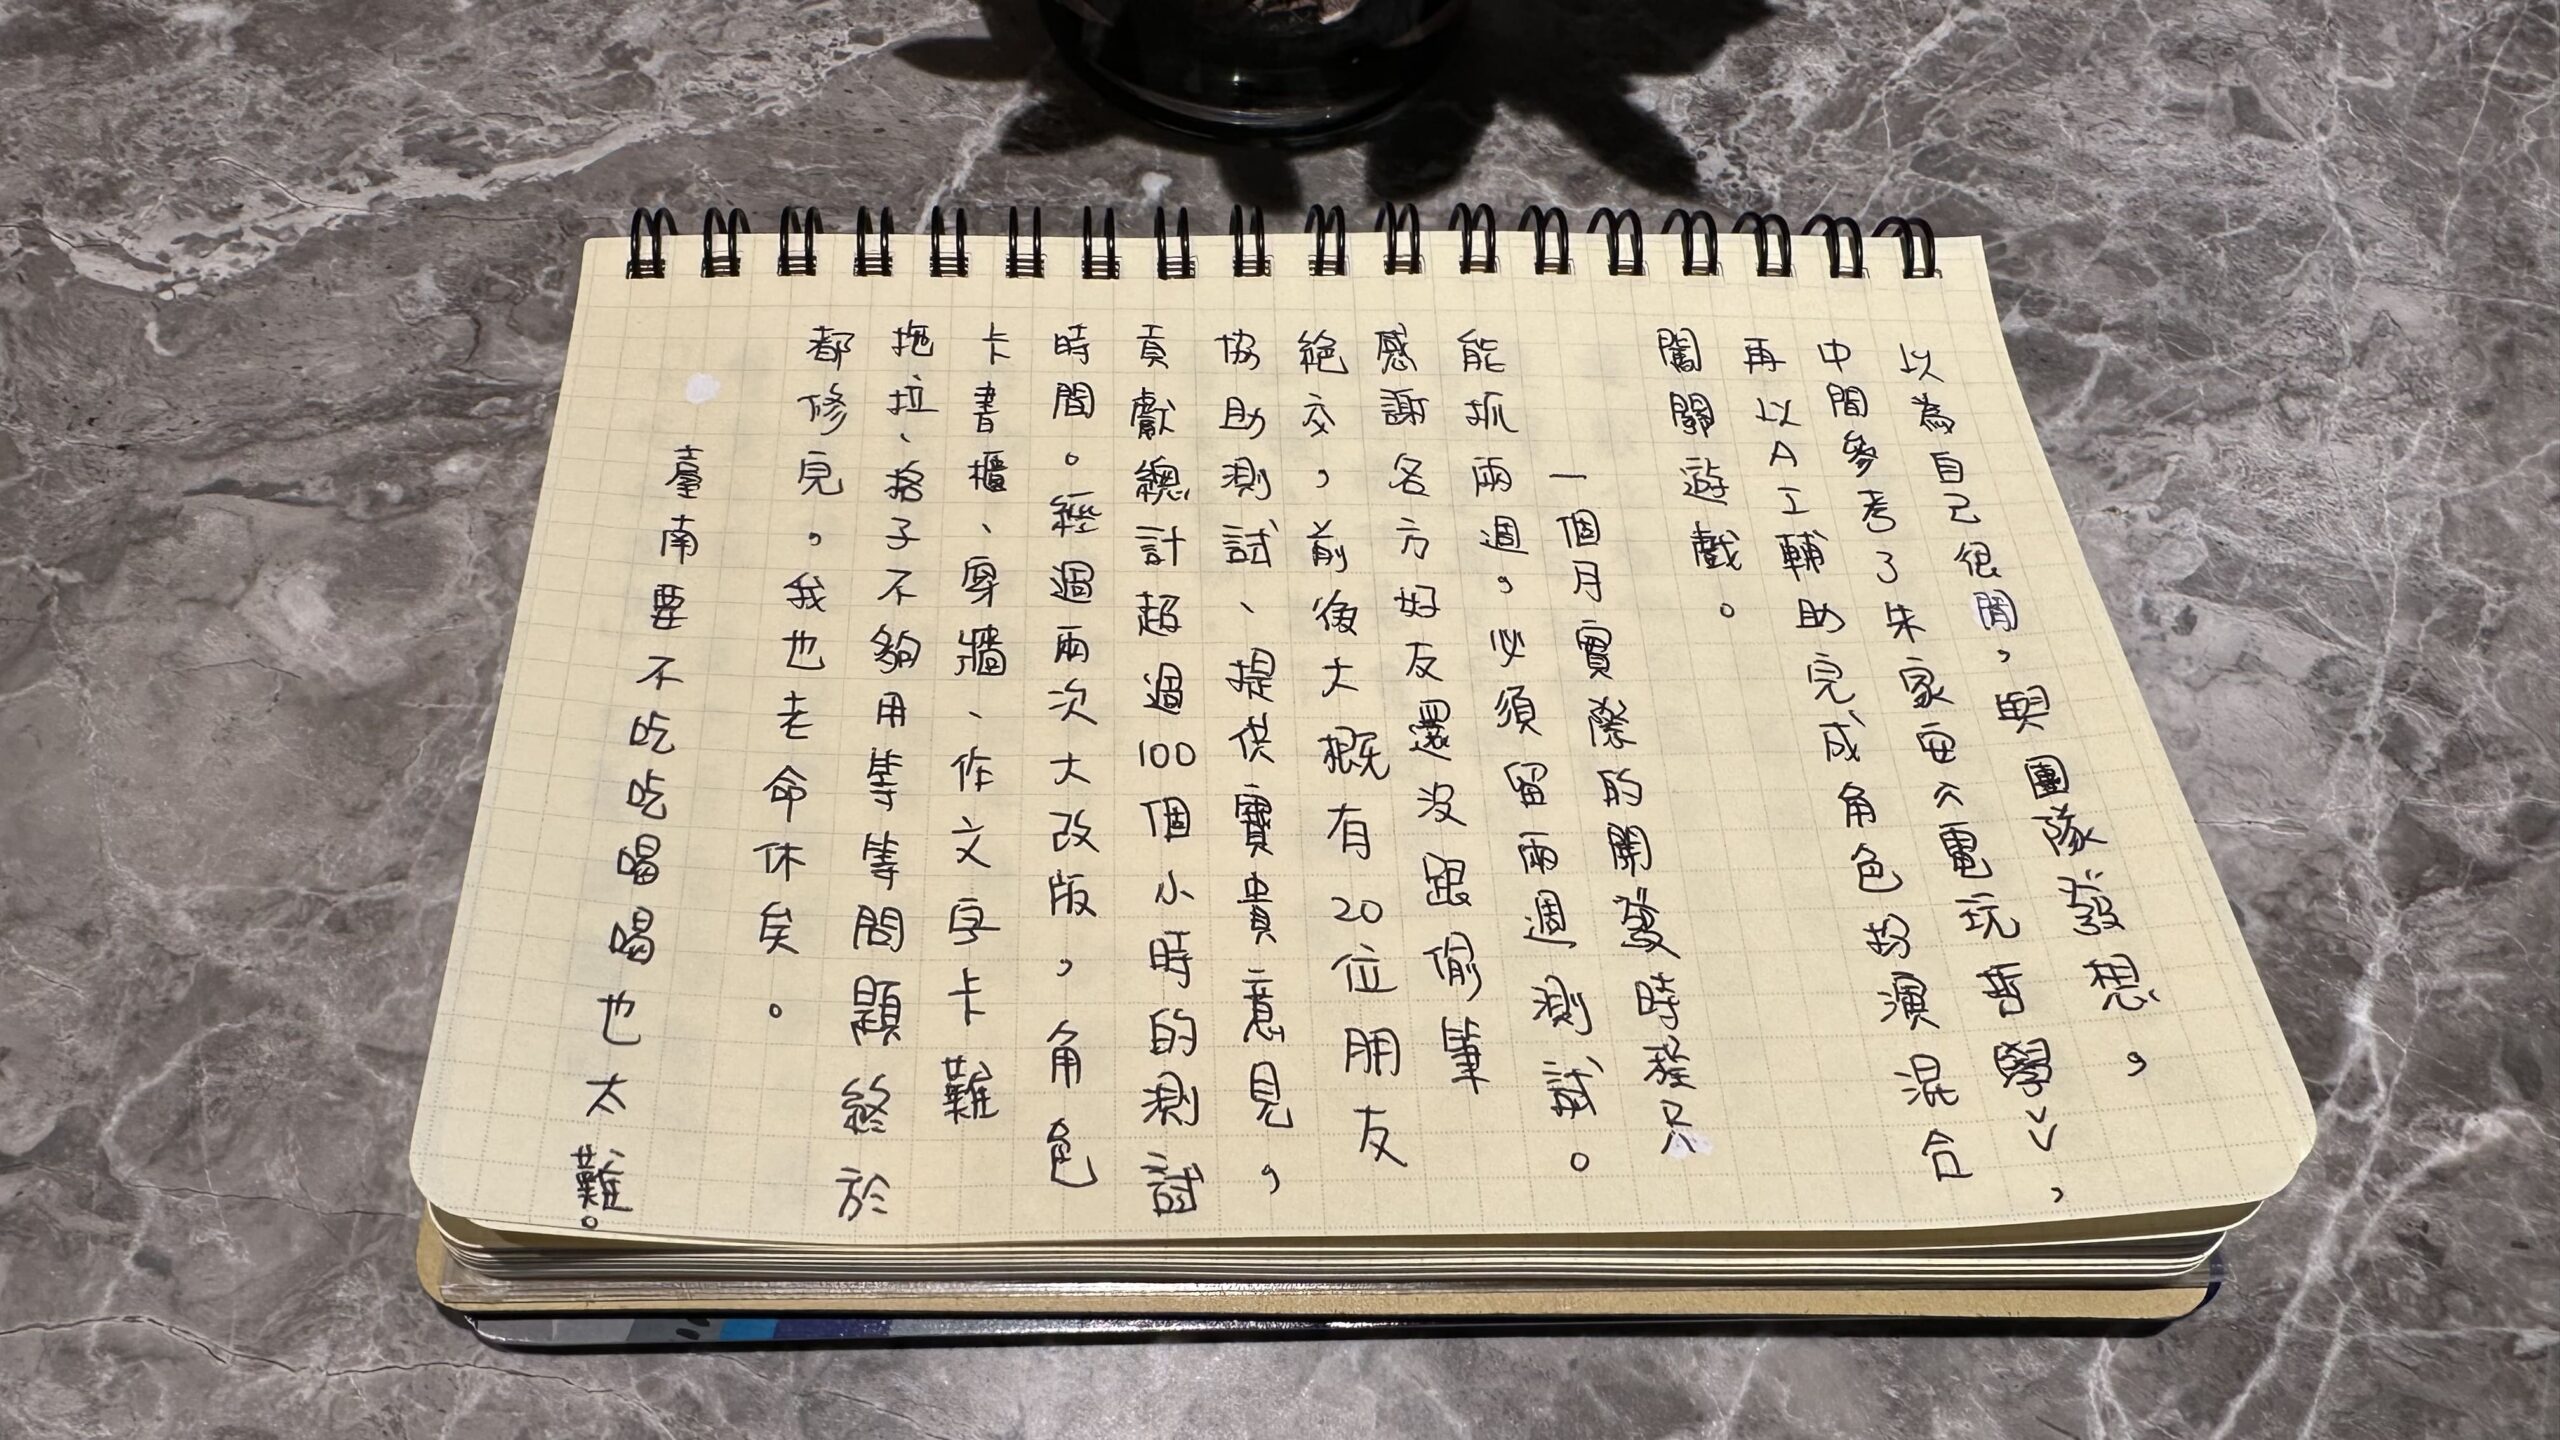 以為自己很閒，與團隊發想，
中間參考了朱家安公電玩哲學ˇˇ，
再以AI輔助完成角色扮演混合
闖關遊戲。
一個月實際的開發時程只
能抓兩週，必須留兩週測試。
感謝各方好友還沒跟偷筆
絕交，前後大概有20位朋友
協助測試、提供寶貴意見，
貢獻總計超過100個小時的測試
時間。經過兩次大改版，角色
卡書櫃、穿牆、作文字卡難
拖拉、格子不夠用等等問題終於
都修完。我也老命休矣。
臺南要不吃吃喝喝也太難。